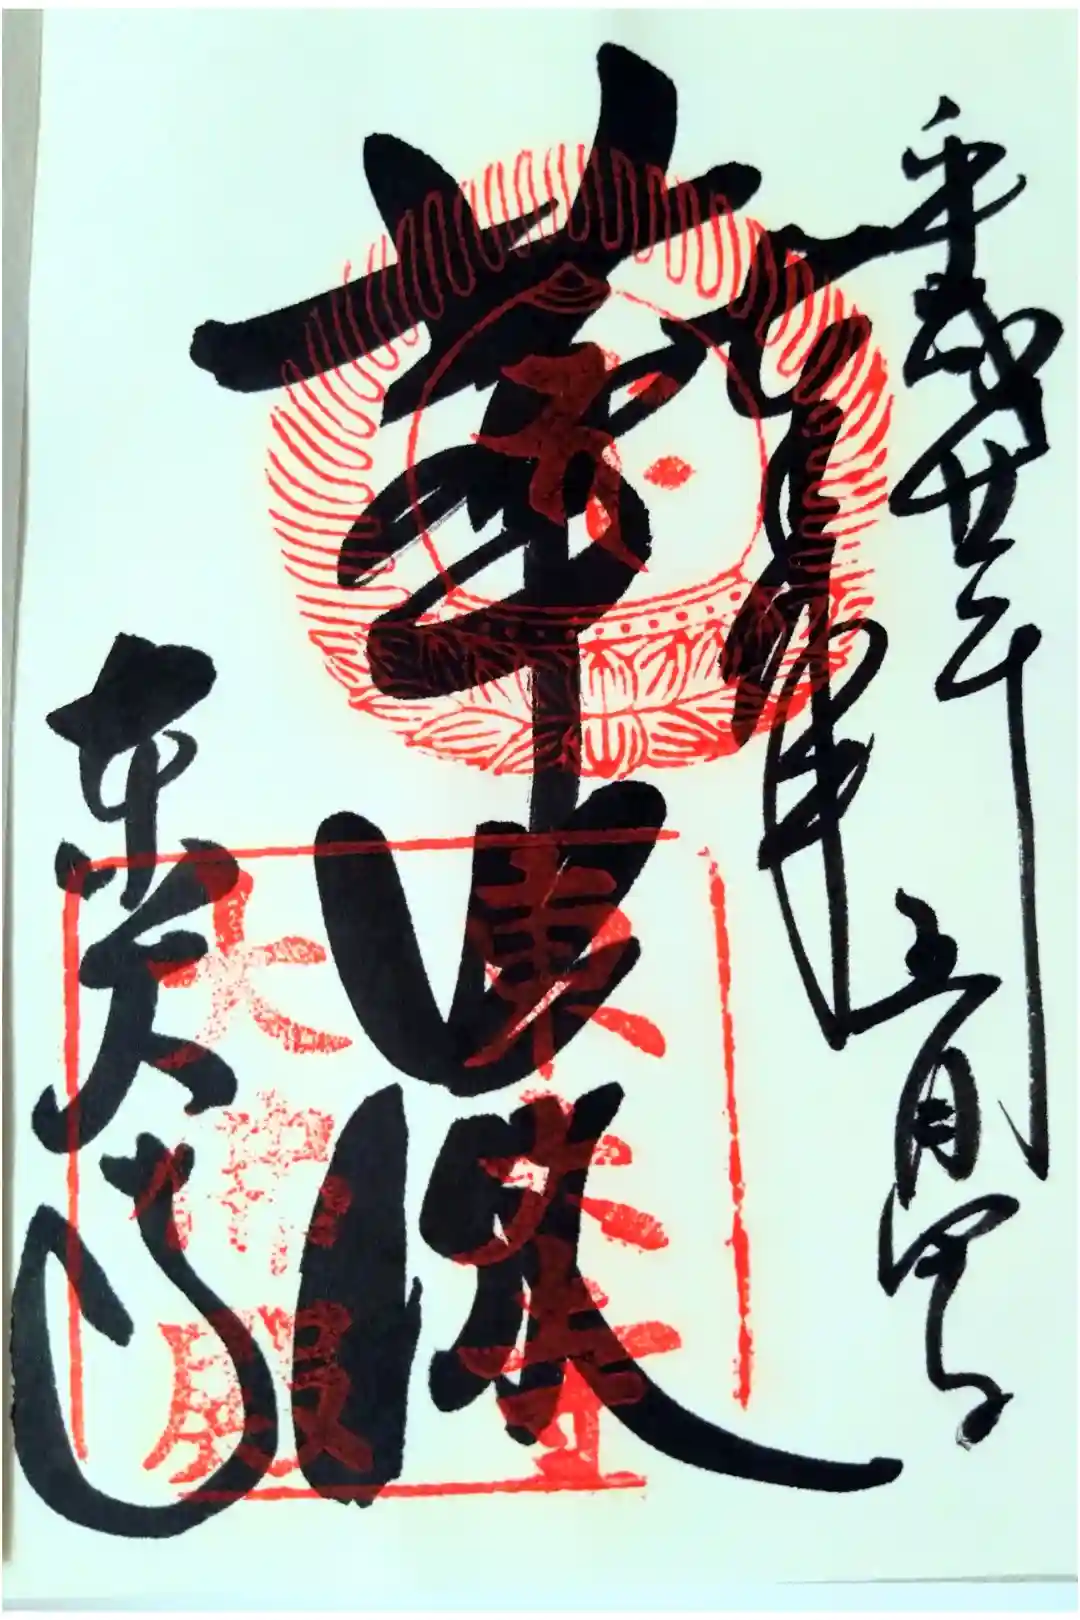 平成廿年五月四日
奉拝
華嚴
東大寺
東大寺
大佛殿